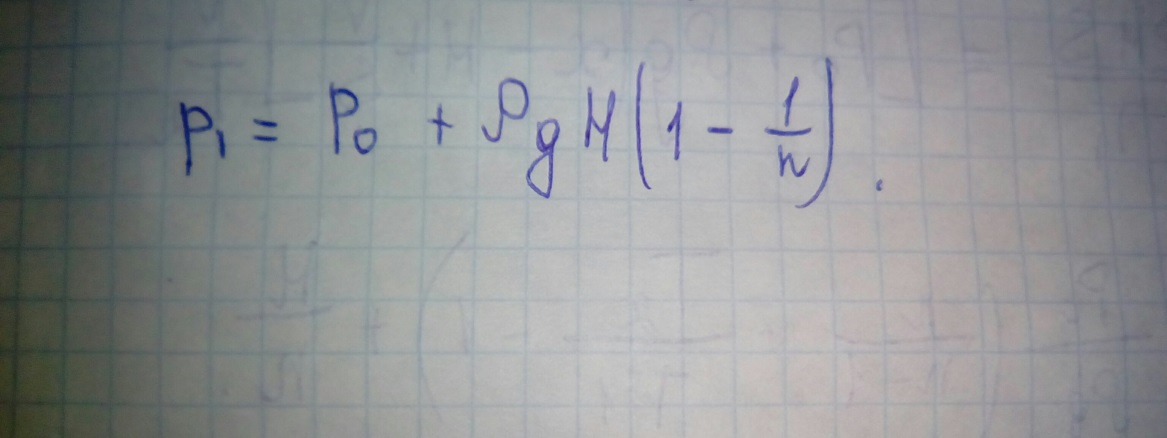 p₁ = p₀ + ρgH(1 - 1/n).